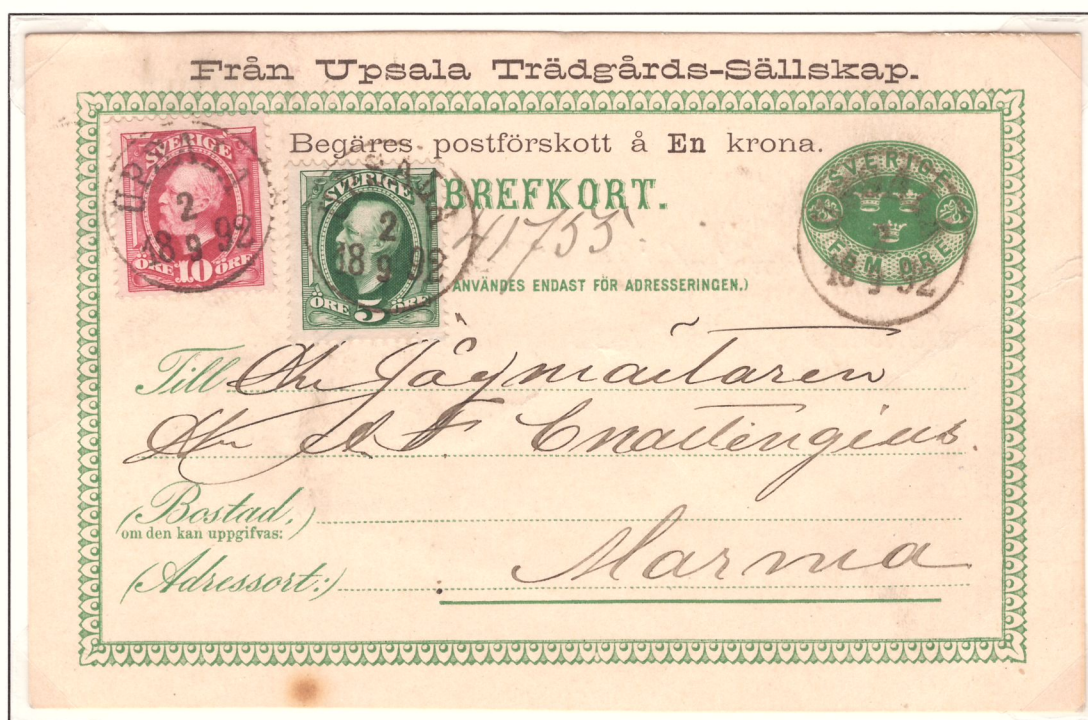 Från Upsala Trädgårds-Sällskap.
Begäres postförskott å En krona.
SVERIGE
10
ÖRE ÖRE
UPSALA
2
18 9 92
SVERIGE
5
ÖRE ÖRE
2
18 9 92
BREFKORT.
41755
(ANVÄNDES ENDAST FÖR ADRESSERINGEN.)
SVERIGE
FEM ÖRE
18 9 92
Till Jägmästaren
A F Cnattingius.
(Bostad,)
om den kan uppgifvas:
Marma
(Adressort:)